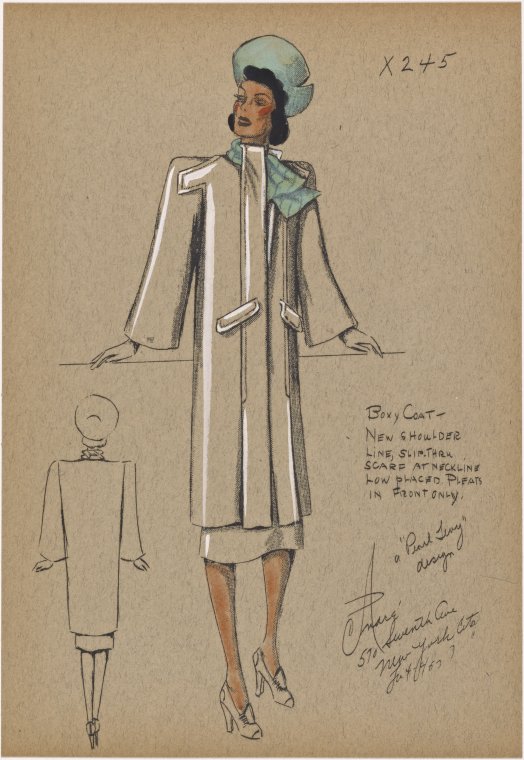 X245
BOXY COAT—
NEW SHOULDER
LINE, SLIP-THRU
SCARF AT NECKLINE
LOW PLACED PLEATS
IN FRONT ONLY.
a "Pearl Levy"
design
André
570 Seventh Ave
New York City